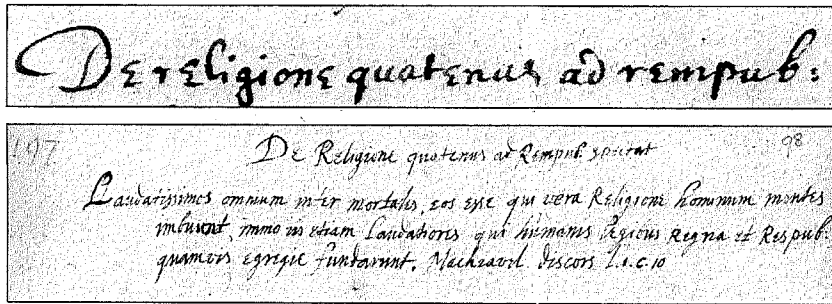 De religione quatenus ad rempub:
197 98
De Religione quatenus ad Rempub. spectat
Laudatissimos omnium inter mortales, eos esse qui vera Religione hominum mentes
imbuunt, immo iis etiam Laudatiores qui humanis legibus Regna et Respub.
quamvis egregie fundarunt. Machiavel discors l.1.c.10